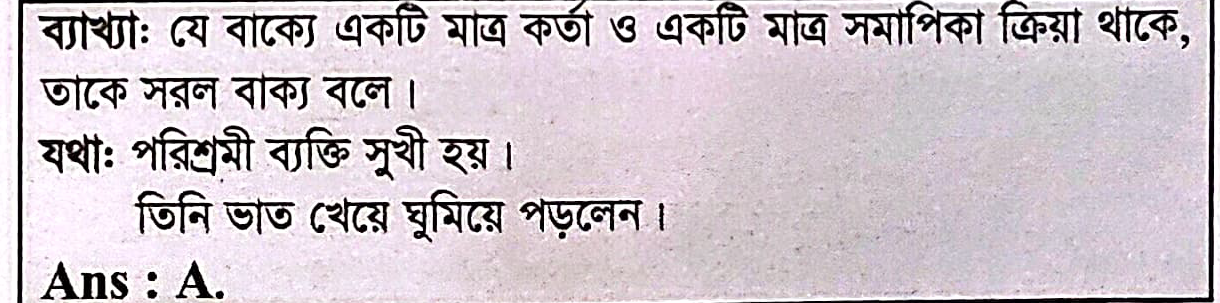 ব্যাখ্যা: যে বাক্যে একটি মাত্র কর্তা ও একটি মাত্র সমাপিকা ক্রিয়া থাকে,
তাকে সরল বাক্য বলে।
যথা: পরিশ্রমী ব্যক্তি সুখী হয়।
তিনি ভাত খেয়ে ঘুমিয়ে পড়লেন।
Ans : A.